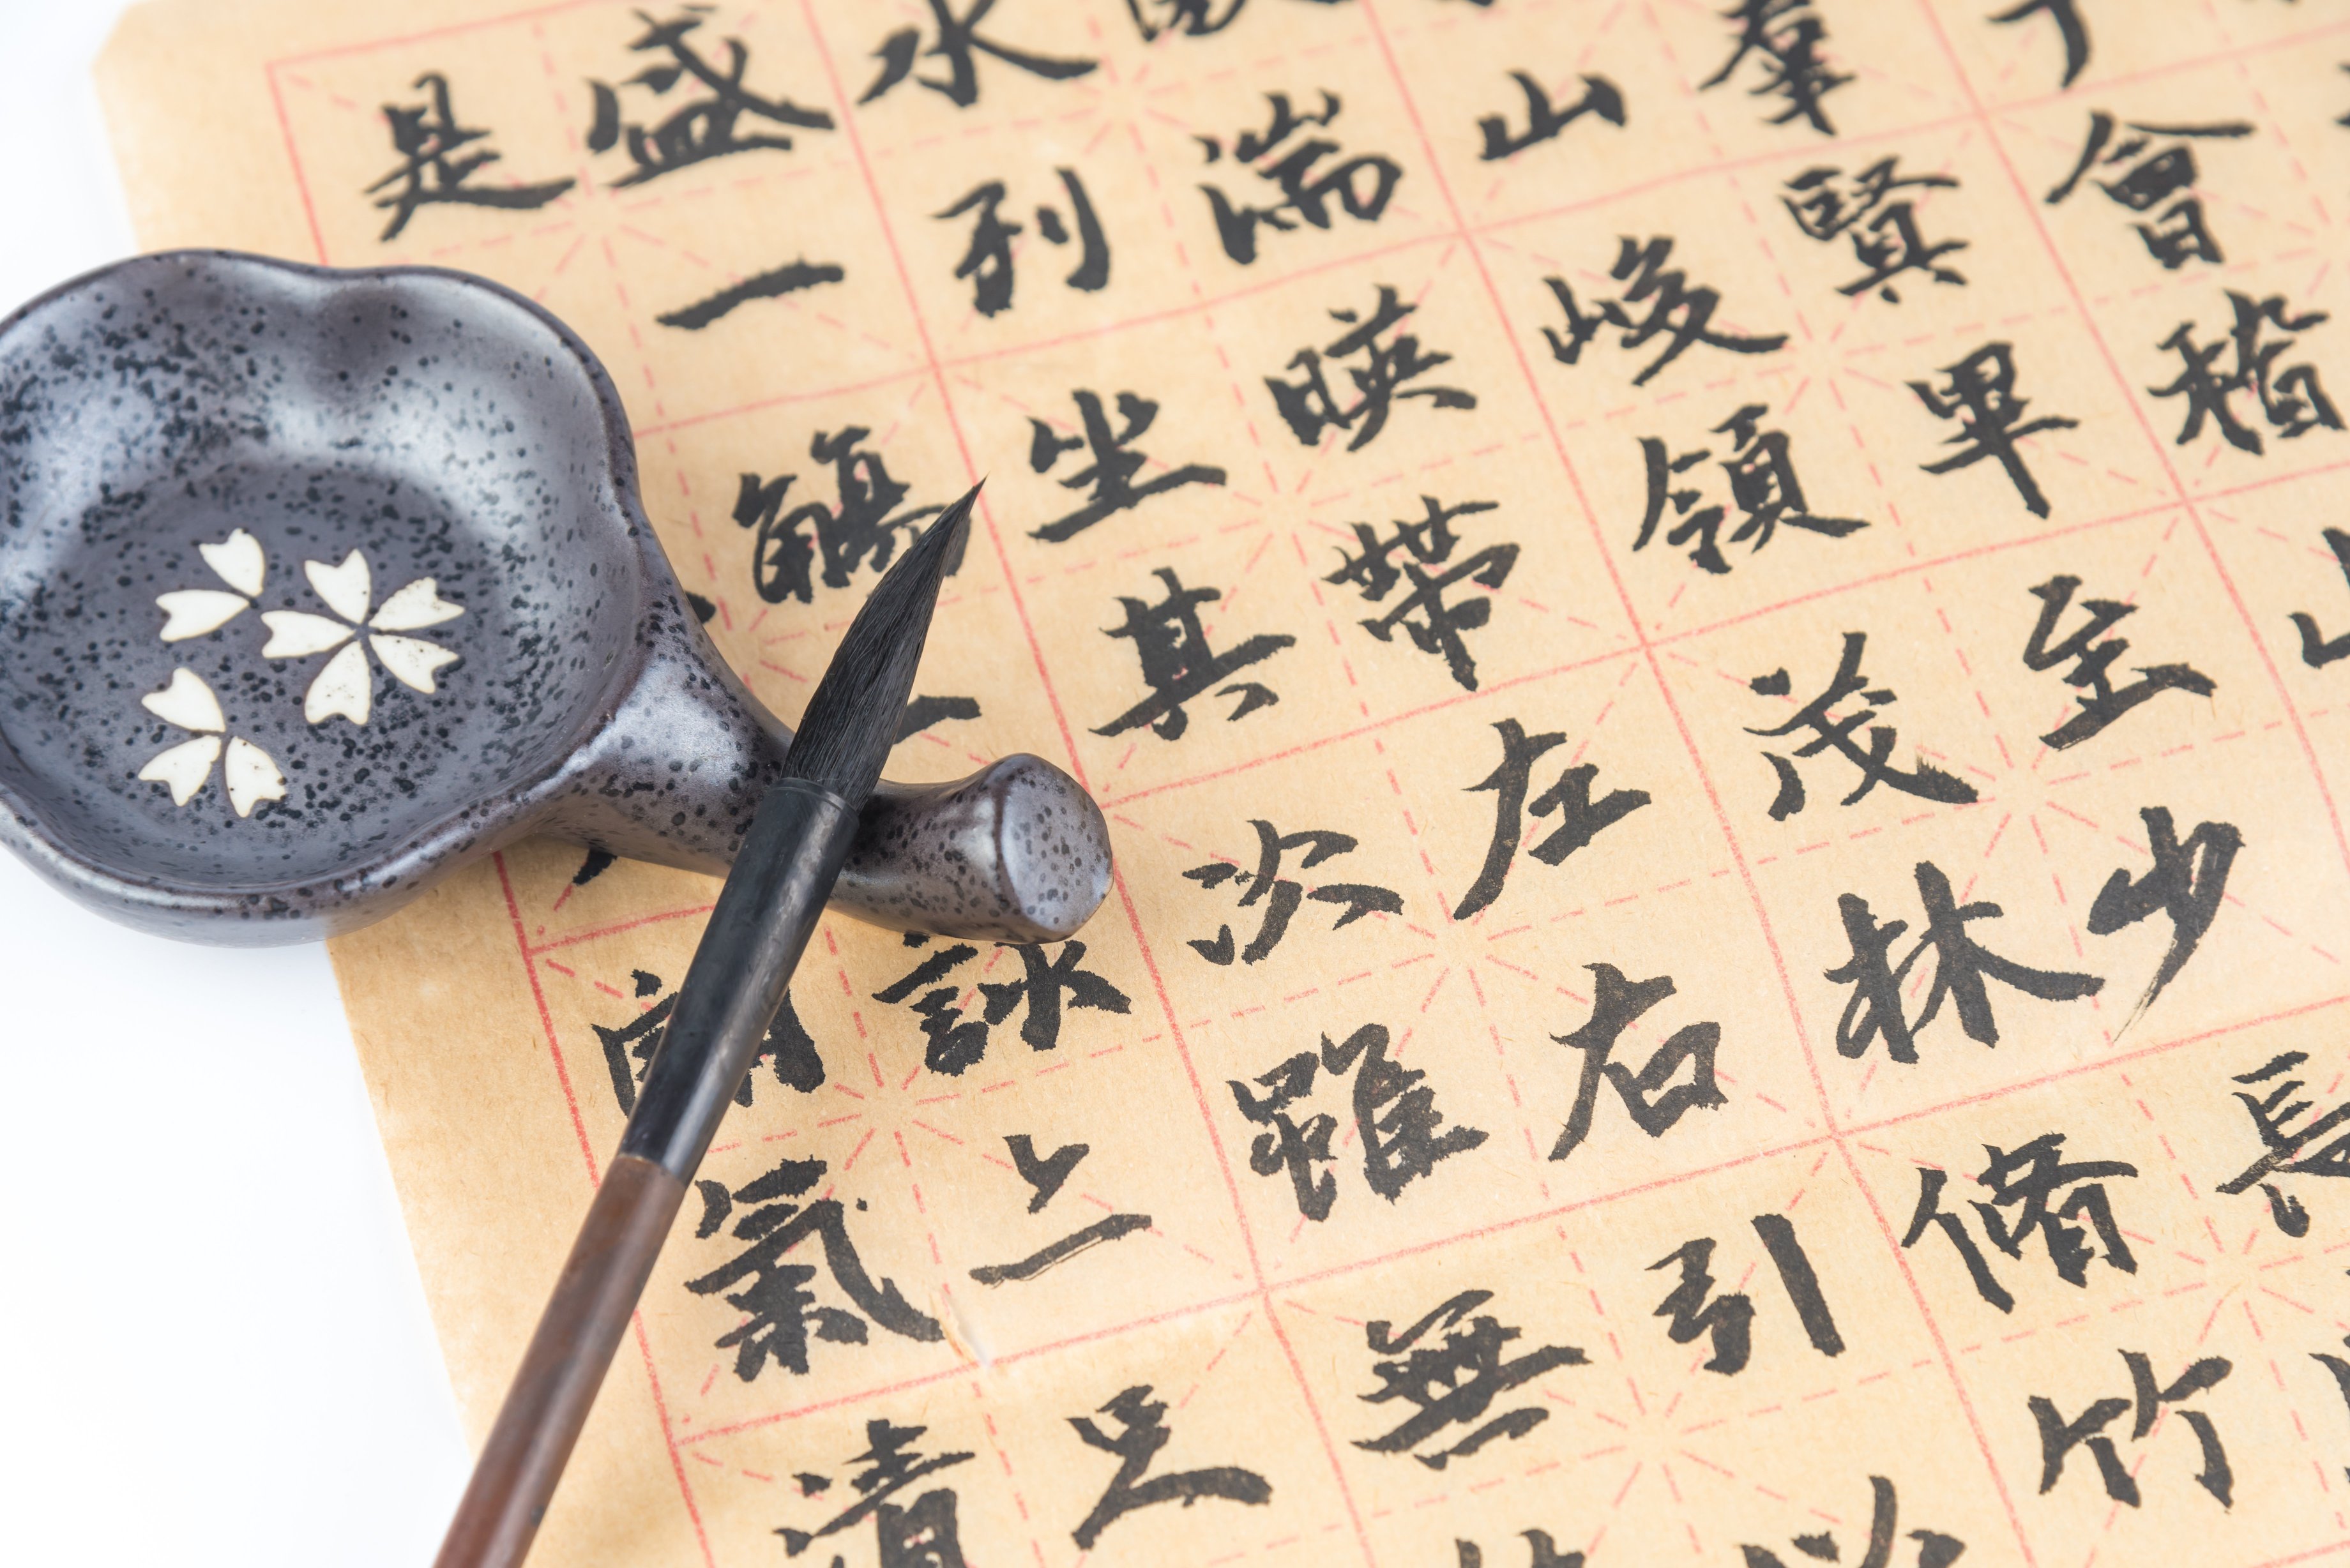 于會稽山
羣賢畢至少長
山峻領茂林脩竹
湍暎帶左右引
水列坐其次雖無
盛一觴一詠上足
是朗氣清